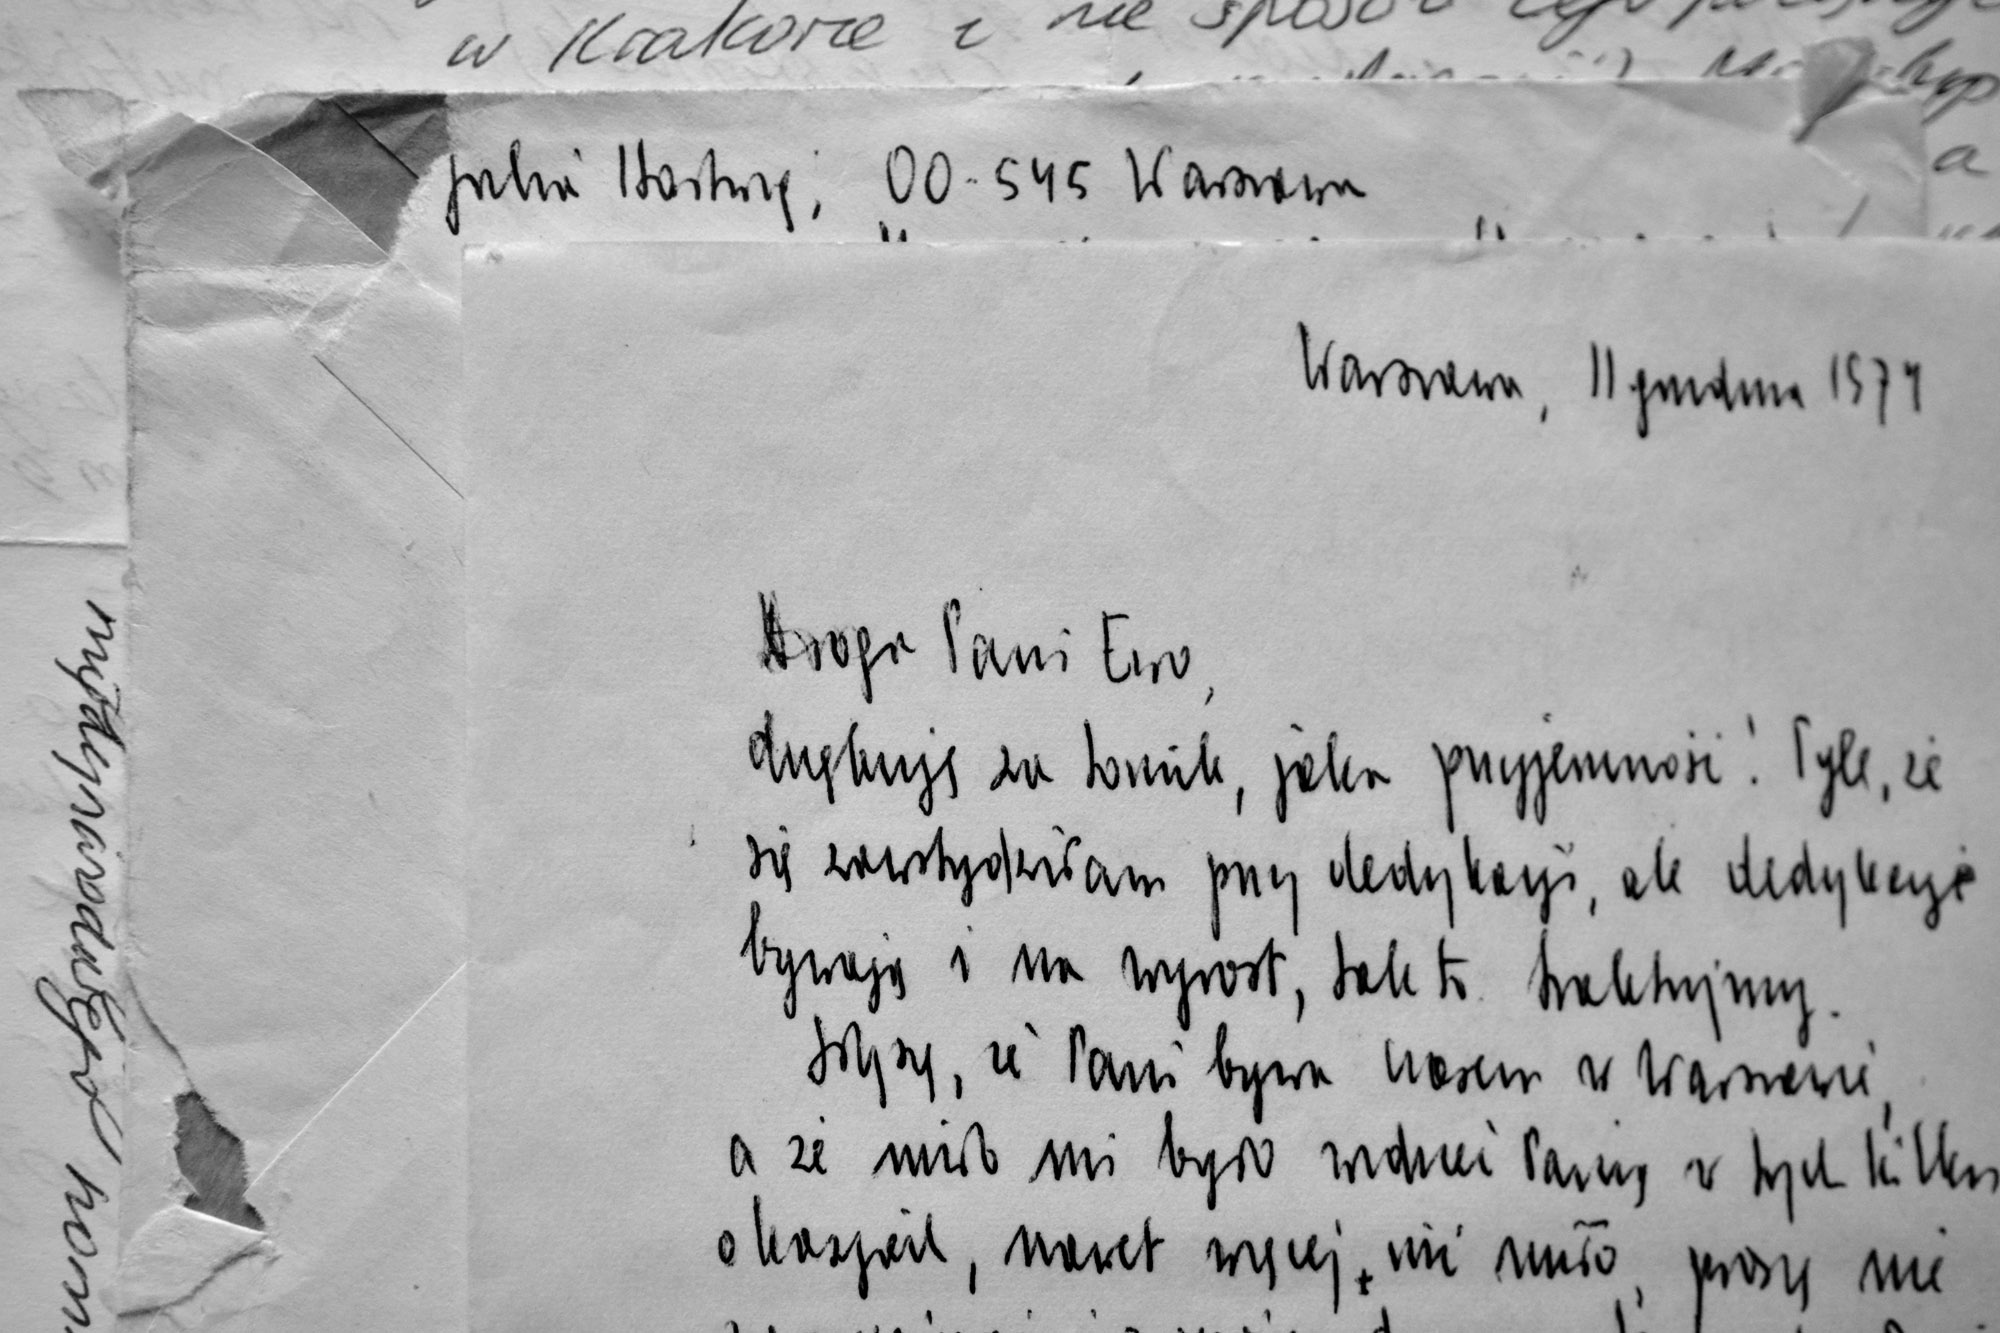 w Krakowie i nie sposób tego
Julia Hartwig, 00-545 Warszawa
Warszawa, 11 grudnia 1974
Droga Pani Ewo,
dziękuję za tomik, jaka przyjemność! Tyle, że
się zawstydziłam przy dedykacji, ale dedykacje
bywają i na wyrost, tak to traktujmy.
Słyszę, że Pani bywa czasem w Warszawie,
a że miło mi było widzieć Panią w tych kilku
okazjach, nawet więcej, niż miło, proszę nie
międzynarodowego